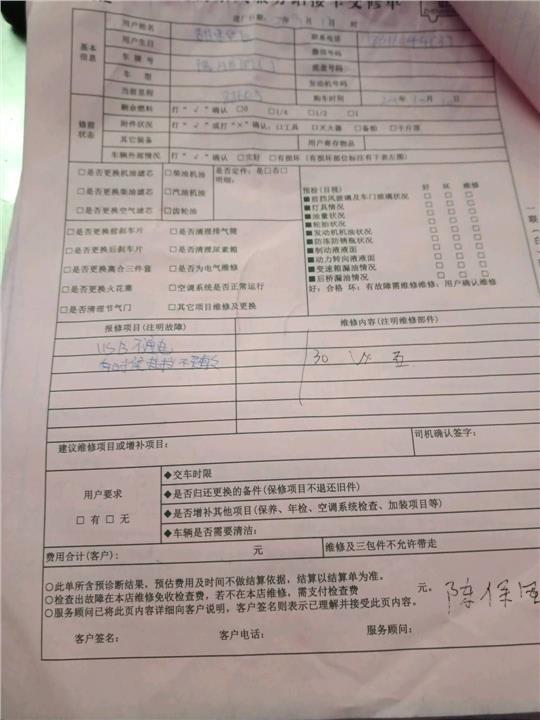 服务站接车交修单
进厂日期: 年 月 日 时
基本信息
用户姓名 联系电话
用户生日 微信号码
车牌号 底盘号码
车型 发动机号码
当前里程 购车时间 年 月 日
辅前状态
剩余燃料 打“√”确认 □0 □1/4 □1/2 □1
附件状况 打“√”或打“×”确认:□工具 □灭火器 □备胎 □千斤顶
其它装备 用户寄存物品
车辆外廓情况 打“√”确认 □完好 □有损坏(有损坏部位标注有下表左图)
□是否更换机油滤芯 □柴油机油 是否定件:是□否□
□是否更换柴油滤芯 □汽油机油 明细:
□是否更换空气滤芯 □齿轮油
□是否更换前刹车片 □是否清理排气筒
□是否更换后刹车片 □是否清理尿素箱
□是否更换离合三件套 □是否为电气维修
□是否更换火花塞 □空调系统是否正常运行
□是否清理节气门 □其它项目维修及更换
预检(目视) 好 坏 维修
■前挡风玻璃及车门玻璃状况 □ □ □
■灯具情况 □ □ □
■油量状况 □ □ □
■轮胎状况 □ □ □
■发动机机油状况 □ □ □
■防冻防锈瓶状况 □ □ □
■制动液液面 □ □ □
■动力转向液液面 □ □ □
■变速箱漏油情况 □ □ □
■后桥漏油情况 □ □ □
好:合格 坏:有故障需维修维修:用户确认维修
报修项目(注明故障) 维修内容(注明维修部件)
USB不通电
30
建议维修项目或增补项目: 司机确认签字:
用户要求
□有 □无
◆交车时限
◆是否归还更换的备件(保修项目不退还旧件)
◆是否增补其他项目(保养、年检、空调系统检查、加装项目等)
◆车辆是否需要清洁:
费用合计(客户): 元 维修及三包件不允许带走
○此单所含预诊断结果,预估费用及时间不做结算依据,结算以结算单为准。
○检查出故障在本店维修免收检查费,若不在本店维修,需支付检查费 元。
○服务顾问已将此页内容详细向客户说明,客户签名则表示已理解并接受此页内容。
陈保国
客户签名: 客户电话: 服务顾问: